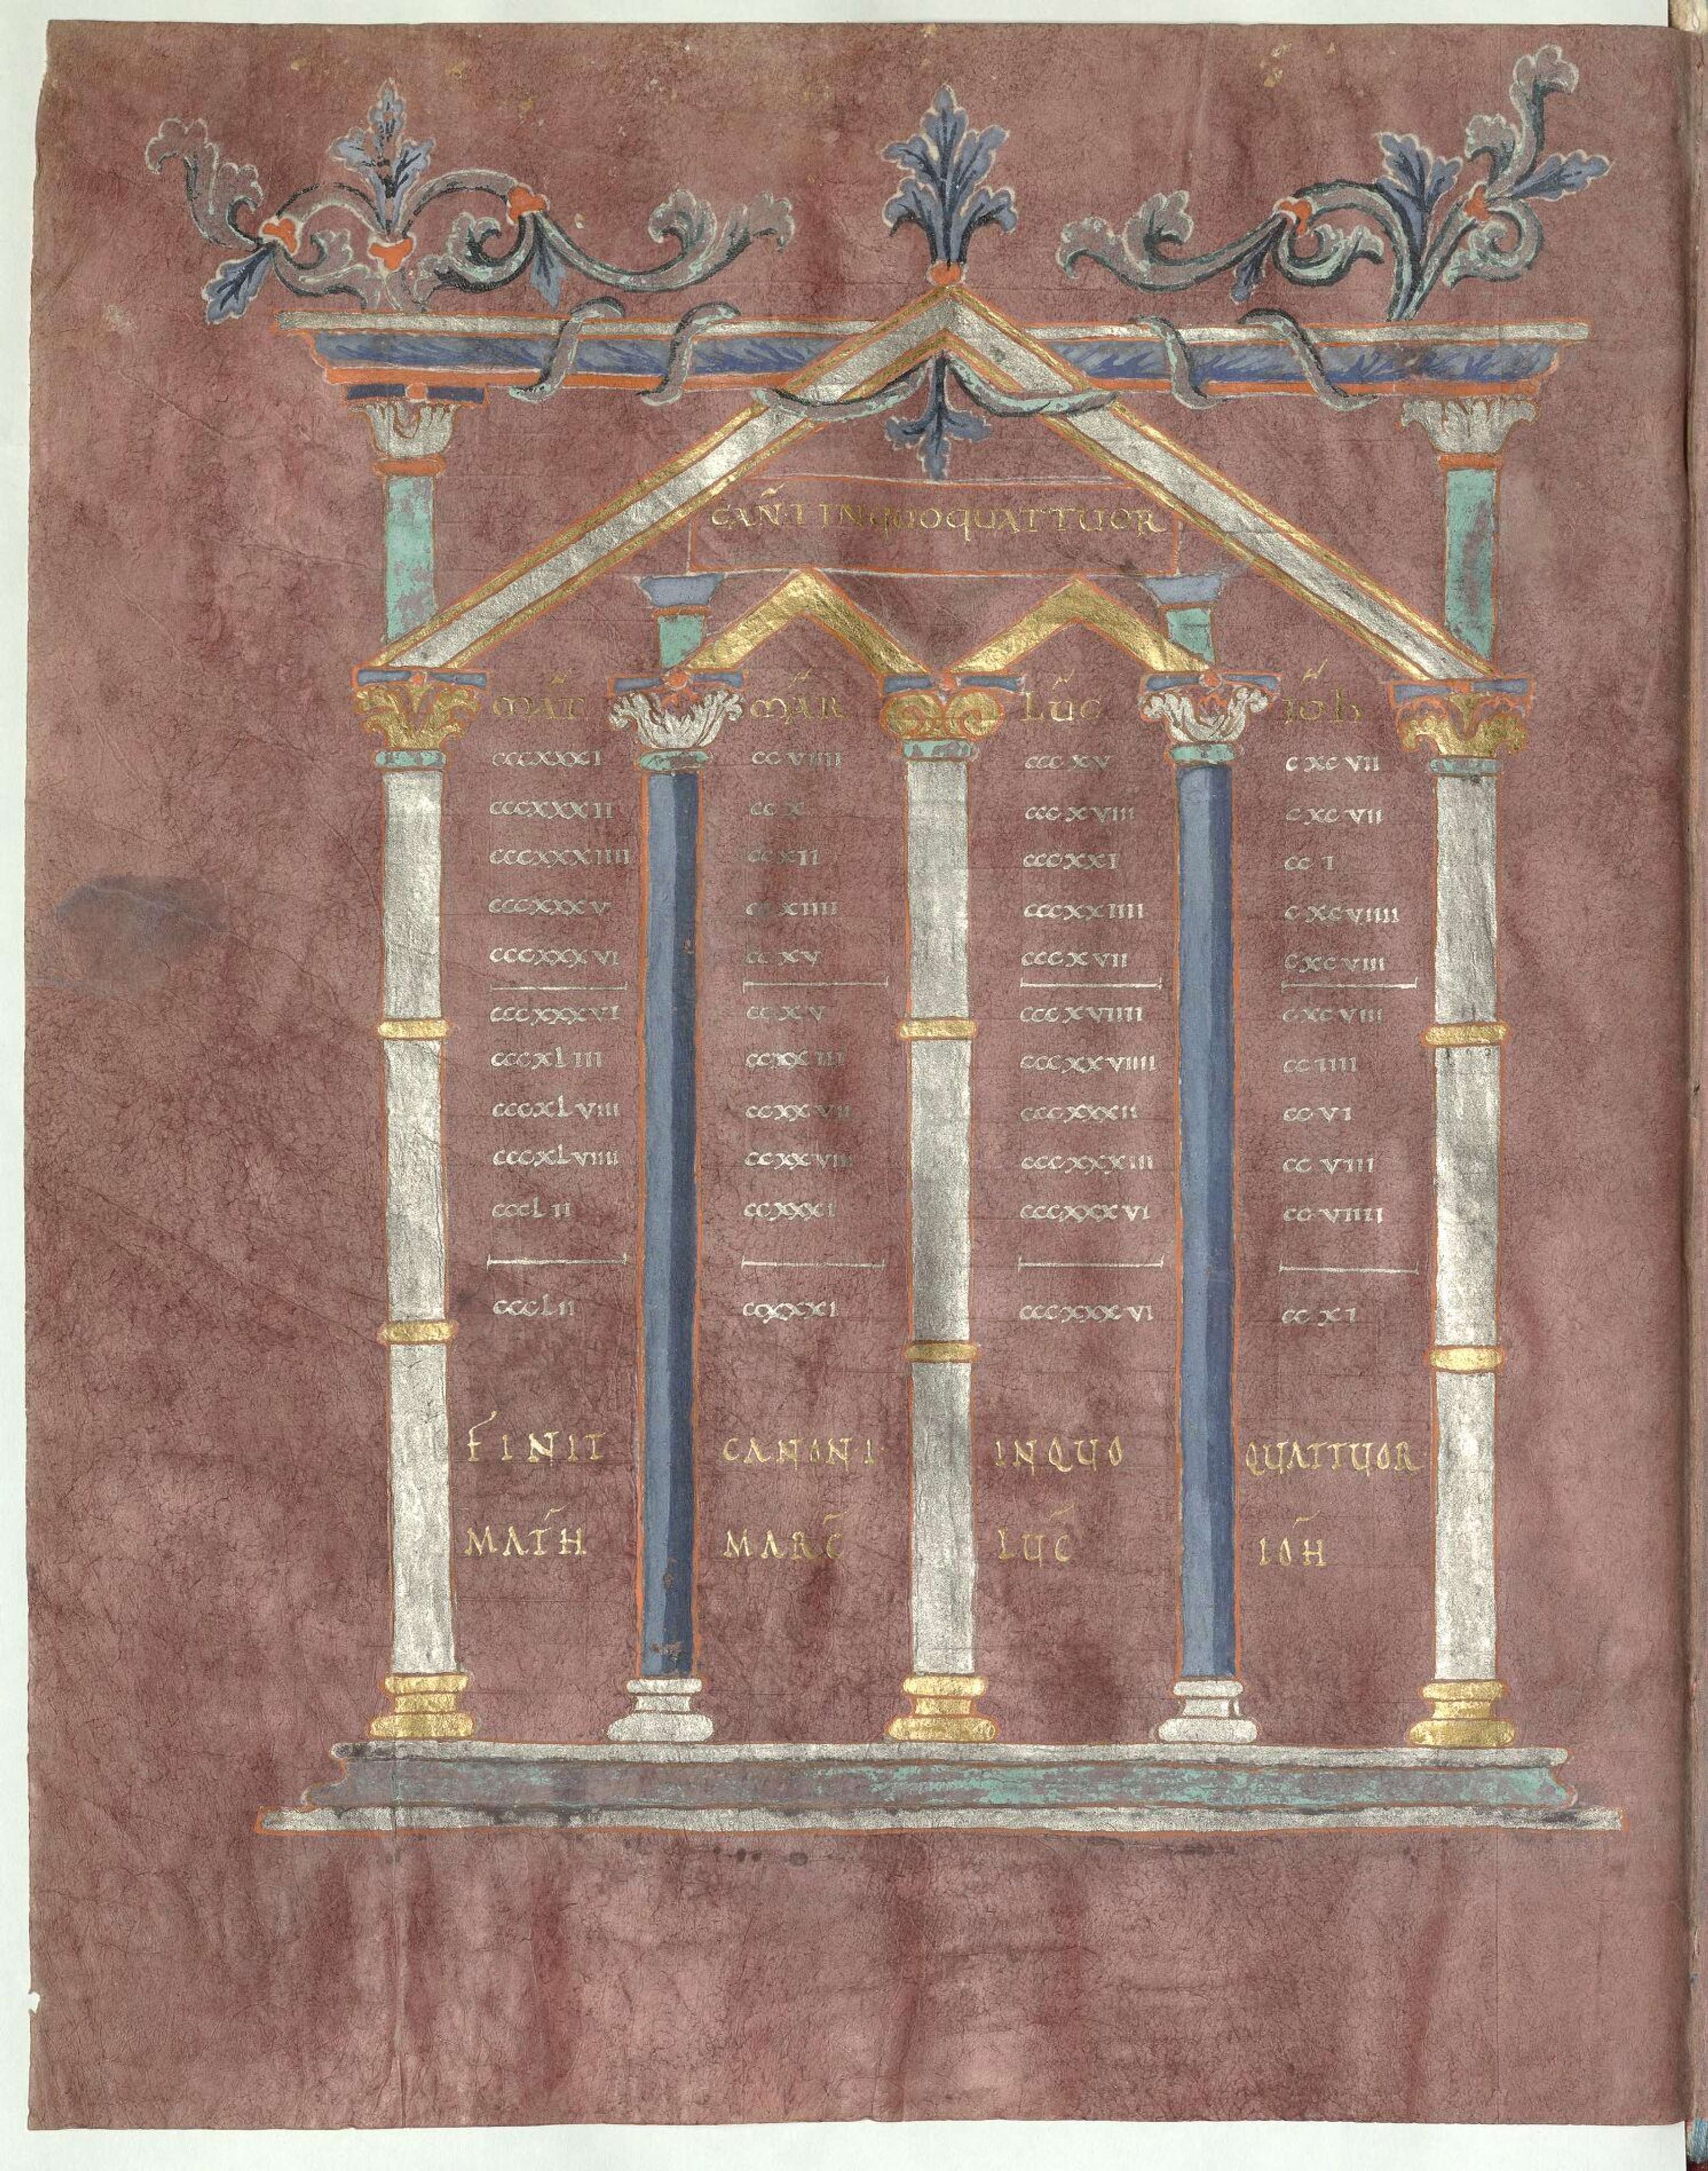 CAÑ I IN QUO QUATTUOR
MAT̃ MAR̃ LUC̃ IOH̃
CCCXXXI CCVIIII CCCXV CXCVII
CCCXXXII CCX CCCXVIII CXCVII
CCCXXXIIII CCXII CCCXXI CCI
CCCXXXV CCXIIII CCCXXIIII CXCVIIII
CCCXXXVI CCXV CCCXVII CXCVIII
CCCXXXVI CCXV CCCXVIIII CXCVIII
CCCXLIII CCXXIII CCCXXVIIII CCIIII
CCCXLVIII CCXXVII CCCXXXII CCVI
CCCXLVIIII CCXXVIII CCCXXXIII CCVIII
CCCLII CCXXXI CCCXXXVI CCVIIII
CCCLII CCXXXI CCCXXXVI CCXI
FINIT CANON I IN QUO QUATTUOR
MAT̃H MARC̃ LUC̃ IOH̃